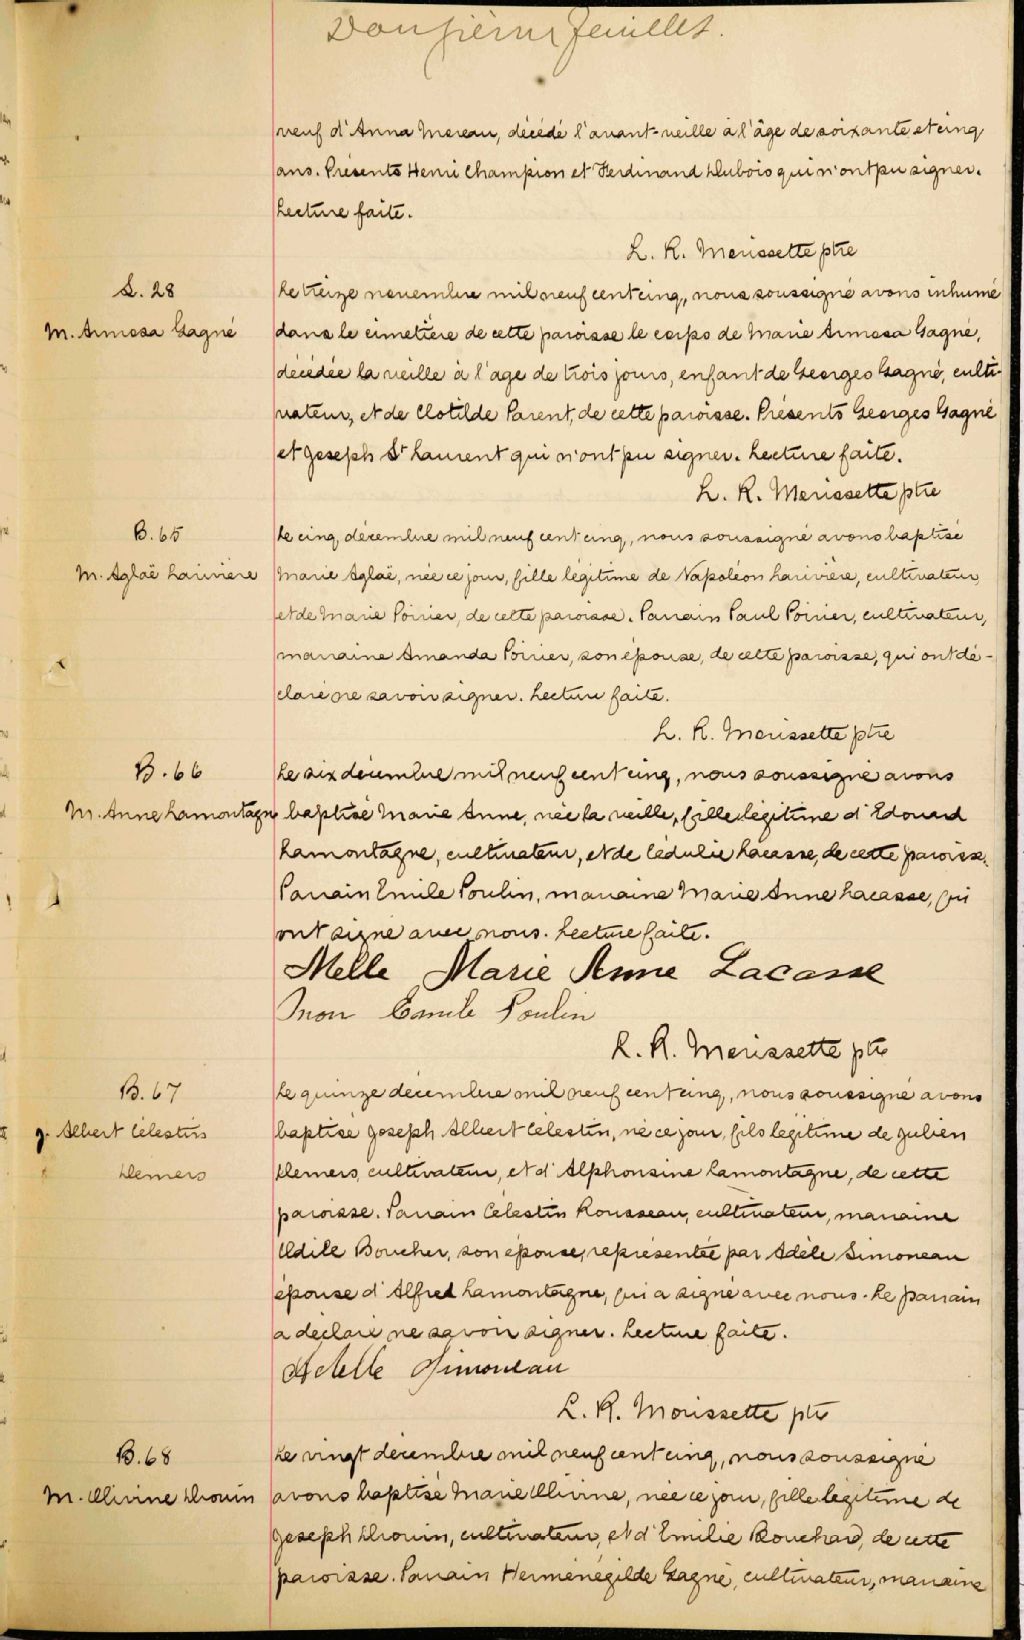 Douzième feuillet.
veuf d'Anna Moreau, décédé l'avant-veille à l'âge de soixante et cinq
ans. Présents Henri Champion et Ferdinand Dubois qui n'ont pu signer.
Lecture faite.
L. R. Morissette ptre
S. 28
M. Armosa Gagné
Le treize novembre mil neuf cent cinq, nous soussigné avons inhumé
dans le cimetière de cette paroisse le corps de Marie Armosa Gagné,
décédée la veille à l'age de trois jours, enfant de Georges Gagné, culti-
vateur, et de Clotilde Parent, de cette paroisse. Présents Georges Gagné
et Joseph St Laurent qui n'ont pu signer. Lecture faite.
L. R. Morissette ptre
B. 65
M. Aglaë Larivière
Le cinq décembre mil neuf cent cinq, nous soussigné avons baptisé
Marie Aglaë, née ce jour, fille légitime de Napoléon Larivière, cultivateur,
et de Marie Poirier, de cette paroisse. Parrain Paul Poirier, cultivateur,
marraine Amanda Poirier, son épouse, de cette paroisse, qui ont dé-
claré ne savoir signer. Lecture faite.
L. R. Morissette ptre
B. 66
M. Anne Lamontagne
Le six décembre mil neuf cent cinq, nous soussigné avons
baptisé Marie Anne, née la veille, fille légitime d'Edouard
Lamontagne, cultivateur, et de Cédulie Lacasse, de cette paroisse.
Parrain Emile Poulin, marraine Marie Anne Lacasse, qui
ont signé avec nous. Lecture faite.
Melle Marie Anne Lacasse
Mon Emile Poulin
L. R. Morissette ptre
B. 67
J. Albert Célestin
Demers
Le quinze décembre mil neuf cent cinq, nous soussigné avons
baptisé Joseph Albert Célestin, né ce jour, fils légitime de Julien
Demers, cultivateur, et d'Alphonsine Lamontagne, de cette
paroisse. Parrain Célestin Rousseau, cultivateur, marraine
Odile Boucher, son épouse, représentée par Adèle Simoneau
épouse d'Alfred Lamontagne, qui a signé avec nous. Le parrain
a déclaré ne savoir signer. Lecture faite.
Adelle Simoneau
L. R. Morissette ptre
B. 68
M. Olivine Drouin
Le vingt décembre mil neuf cent cinq, nous soussigné
avons baptisé Marie Olivine, née ce jour, fille légitime de
Joseph Drouin, cultivateur, et d'Emilie Bouchard, de cette
paroisse. Parrain Herménégilde Gagné, cultivateur, marraine